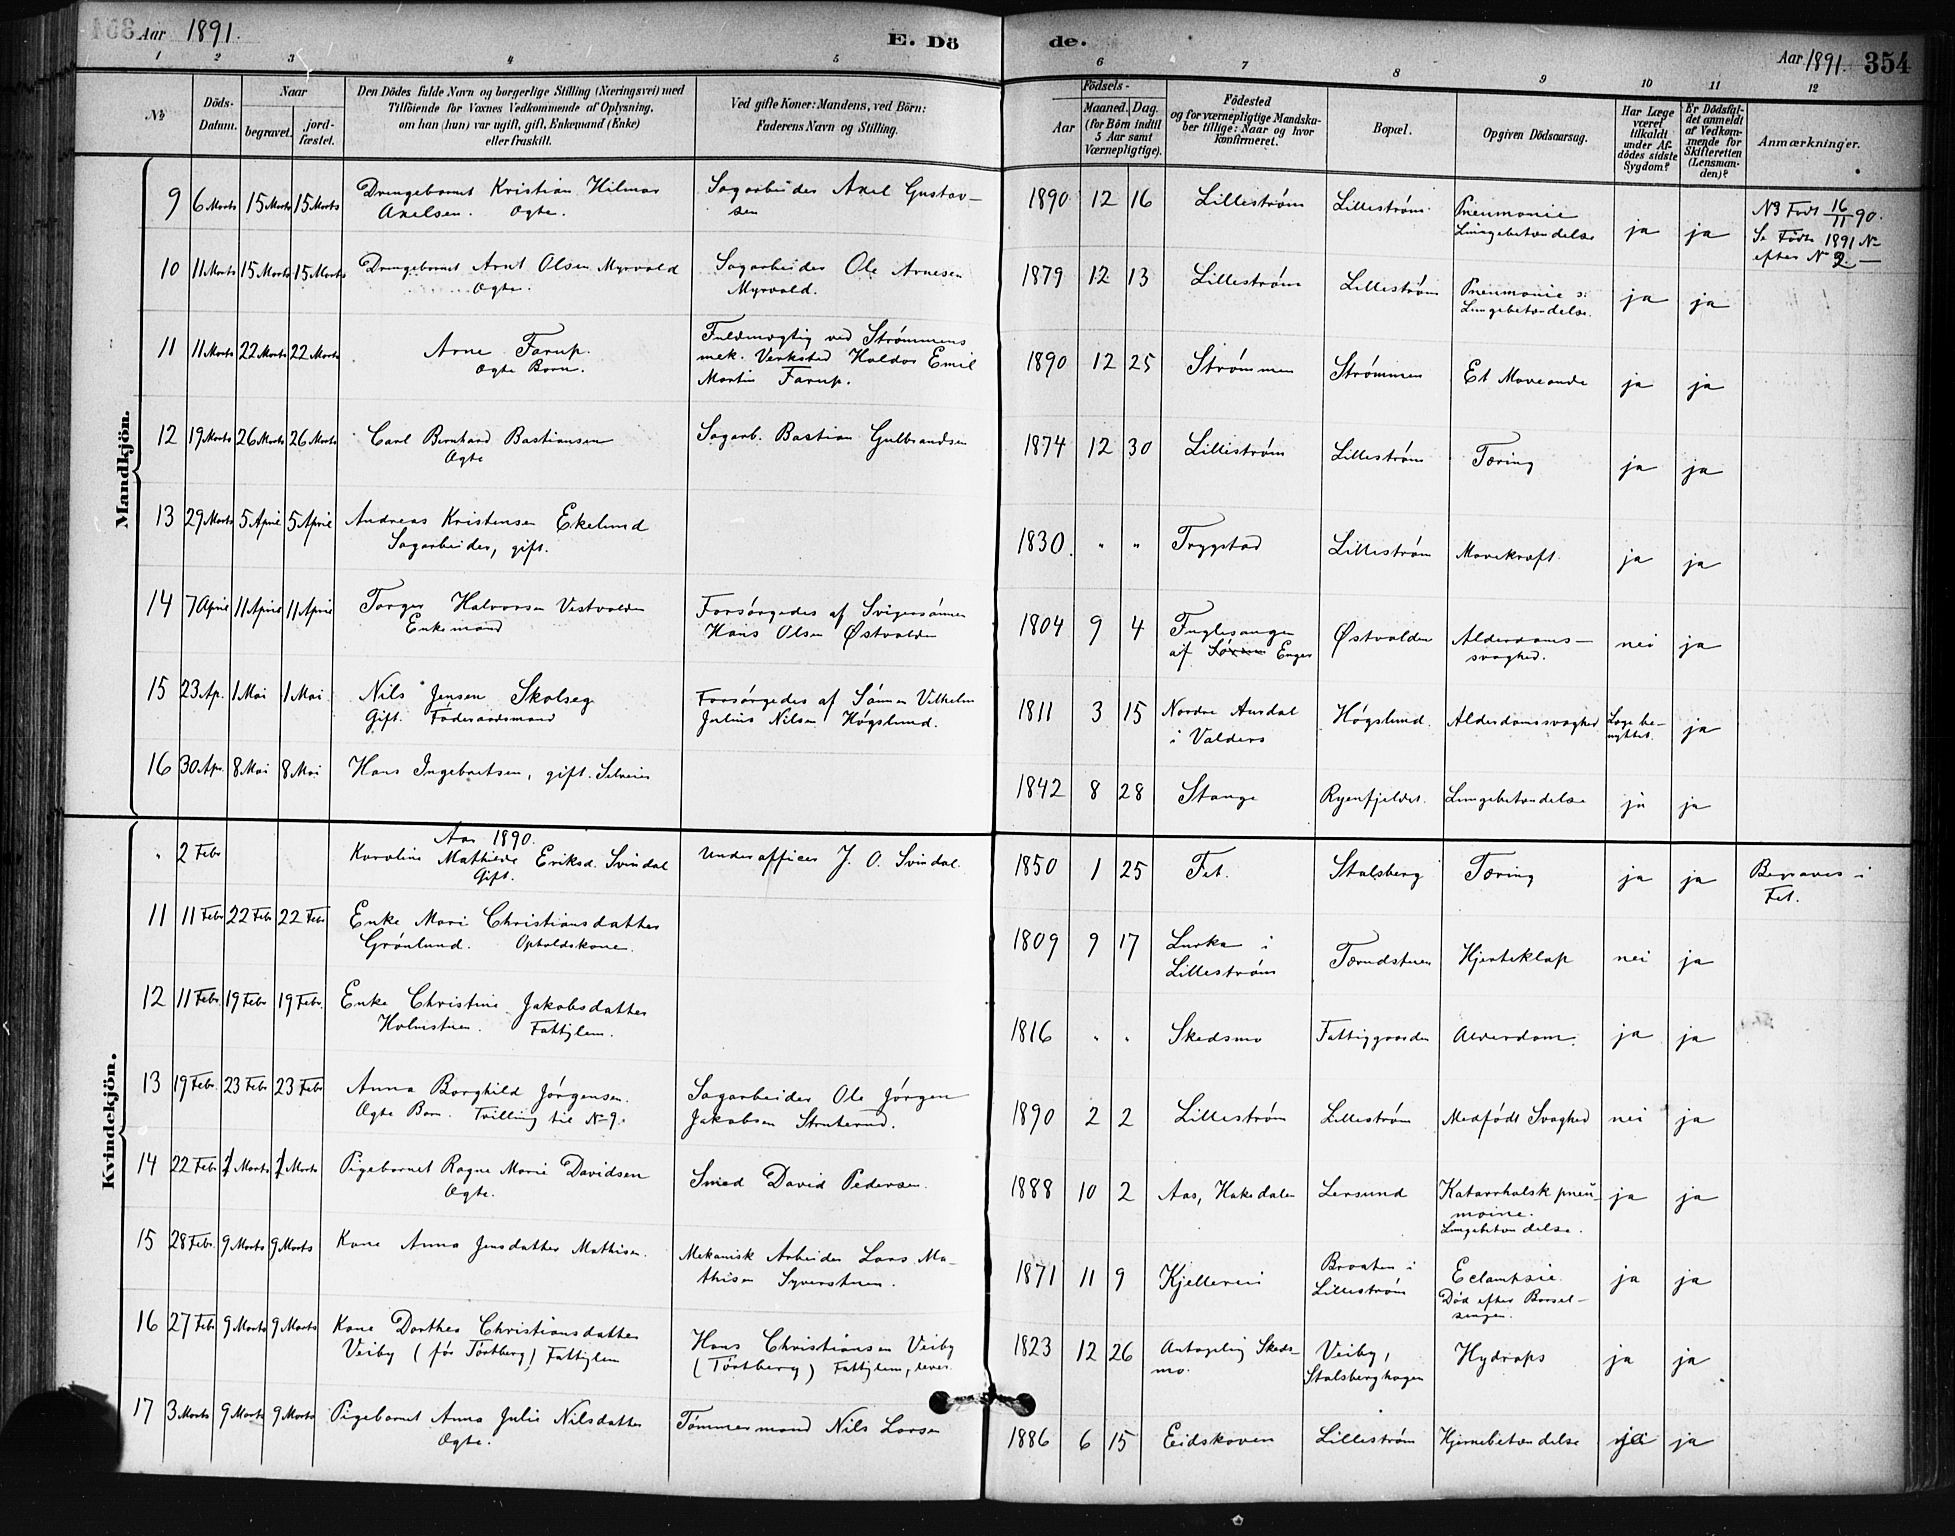 Aar 1891. E. Dö de. Aar 1891. 354
1 2 3 4 5 6 7 8 9 10 11 12
№
Döds-Datum.
Naar
begravet.
jord-fæstet.
Den Dödes fulde Navn og borgerlige Stilling (Næringsvei) med
Tilföiende for Voxnes Vedkommende af Oplysning,
om han (hun) var ugift, gift, Enkemand (Enke)
eller fraskilt.
Ved gifte Koner: Mandens, ved Börn:
Faderens Navn og Stilling.
Födsels-
Aar
Maaned. Dag.
(for Börn indtil
5 Aar samt
Værnepligtige).
Födested
og for værnepligtige Mandska-
ber tillige: Naar og hvor
konfirmeret.
Bopæl.
Opgiven Dödsaarsag.
Har Læge
været
tilkaldt
under Af-
dödes sidste
Sygdom?
Er Dödsfal-
det anmeldt
af Vedkom-
mende for
Skifteretten
(Lensman-
den)?
Anmærkninger.
Mandkjön.
9 6 Marts 15 Marts 15 Marts Drengebarnet Kristian Hilmar
Axelsen. Ægte.
Sagarbeider Axel Gustav-
sen
1890 12 16 Lillestrøm Lillestrøm Pneumonie
Lungebetændelse
ja ja
NB Født 16/11 90.
Se Fødte 1891 №
efter № 2 —
10 11 Marts 15 Marts 15 Marts Drengebarnet Arnt Olsen Myrvold
Ægte.
Sagarbeider Ole Arnesen
Myrvold.
1879 12 13 Lillestrøm Lillestrøm Pneumonie s:
Lungebetændelse.
ja ja
11 11 Marts 22 Marts 22 Marts Arne Farup.
Ægte Barn.
Fuldmægtig ved Strømmens
mek. Verksted Haldor Emil
Martin Farup.
1890 12 25 Strømmen Strømmen Et Maveonde ja ja
12 19 Marts 26 Marts 26 Marts Carl Bernhard Bastiansen
Ægte
Sagarb. Bastian Gulbrandsen
1874 12 30 Lillestrøm Lillestrøm Tæring ja ja
13 29 Marts 5 April 5 April Andreas Kristensen Ekelund
Sagarbeider, gift.
1830. " " Trygstad Lillestrøm Mavekræft ja ja
14 7 April 11 April 11 April Torger Halvorsen Vestvolden
Enkemand
Forsørgedes af Svigersønnen
Hans Olsen Østvolden
1804 9 4 Fuglesangen
af Enger
Østvolden Alderdoms-
svaghed.
nei ja
15 23 Ap. 1 Mai 1 Mai Nils Jensen Skolseg
Gift. Föderaadsmand
Forsørgedes af Sønnen Vilhelm
Julius Nilsen Høgslund.
1811 3 15 Nordre Aurdal
i Valders
Høgslund. Alderdomssvaghed Læge be-
nyttet.
ja
16 30 Ap. 8 Mai 8 Mai Hans Ingebretsen, gift. Selveier
1842 8 28 Stange Ryenfjeldet. Lungebetændelse ja ja
Kvindekjön.
Aar 1890.
" 2 Febr Karoline Mathilde Eriksd. Svindal
Gift.
Underofficer J. O. Svindal.
1850 1 25 Fet. Stalsberg Tæring ja ja Begraves i
Fet.
11 11 Febr 22 Febr 22 Febr Enke Mari Christiansdatter
Grønlund. Opholdskone.
1809 9 17 Lurka i
Lillestrøm
Tærudstuen Hjerteklap nei ja
12 11 Febr. 19 Febr 19 Febr. Enke Christine Jakobsdatter
Holmstuen. Fattiglem.
1816 " " Skedsmo Fattiggaarden Alderdom. ja ja
13 19 Febr. 23 Febr 23 Febr Anna Borghild Jørgensen.
Ægte Barn. Tvilling til № 9.
Sagarbeider Ole Jørgen
Jakobsen Struterud.
1890 2 2 Lillestrøm Lillestrøm Medfødt Svaghed nei ja
14 22 Febr 1 Marts 1 Marts Pigebarnet Ragna Marie Davidsen
Ægte.
Smed David Pedersen.
1888 10 2 Aas, Hakedalen Lersund Katarrhalsk pneu-
monie.
Lungebetændelse.
ja ja
15 28 Febr. 9 Marts 9 Marts Kone Anna Jensdatter Mathisen.
Mekanisk Arbeider Lars Ma-
thisen Syverstuen.
1871 11 9 Kjellerein Braaten i
Lillestrøm
Eclampsie.
Død efter Barsel-
sengen.
ja ja
16 27 Febr 9 Marts 9 Marts Kone Dorthea Christiansdatter
Veiby (før Tortberg) Fattiglem
Hans Christiansen Veiby
(Tortberg) Fattiglem, lever.
1823 12 26 Antagelig Skeds-
mo.
Veiby,
Stalsberghagen
Hydrops ja ja
17 3 Marts 9 Marts 9 Marts Pigebarnet Anna Julie Nilsdatter
Ægte.
Tømmermand Nils Larsen
1886 6 15 Eidskoven Lillestrøm Hjernebetændelse ja ja